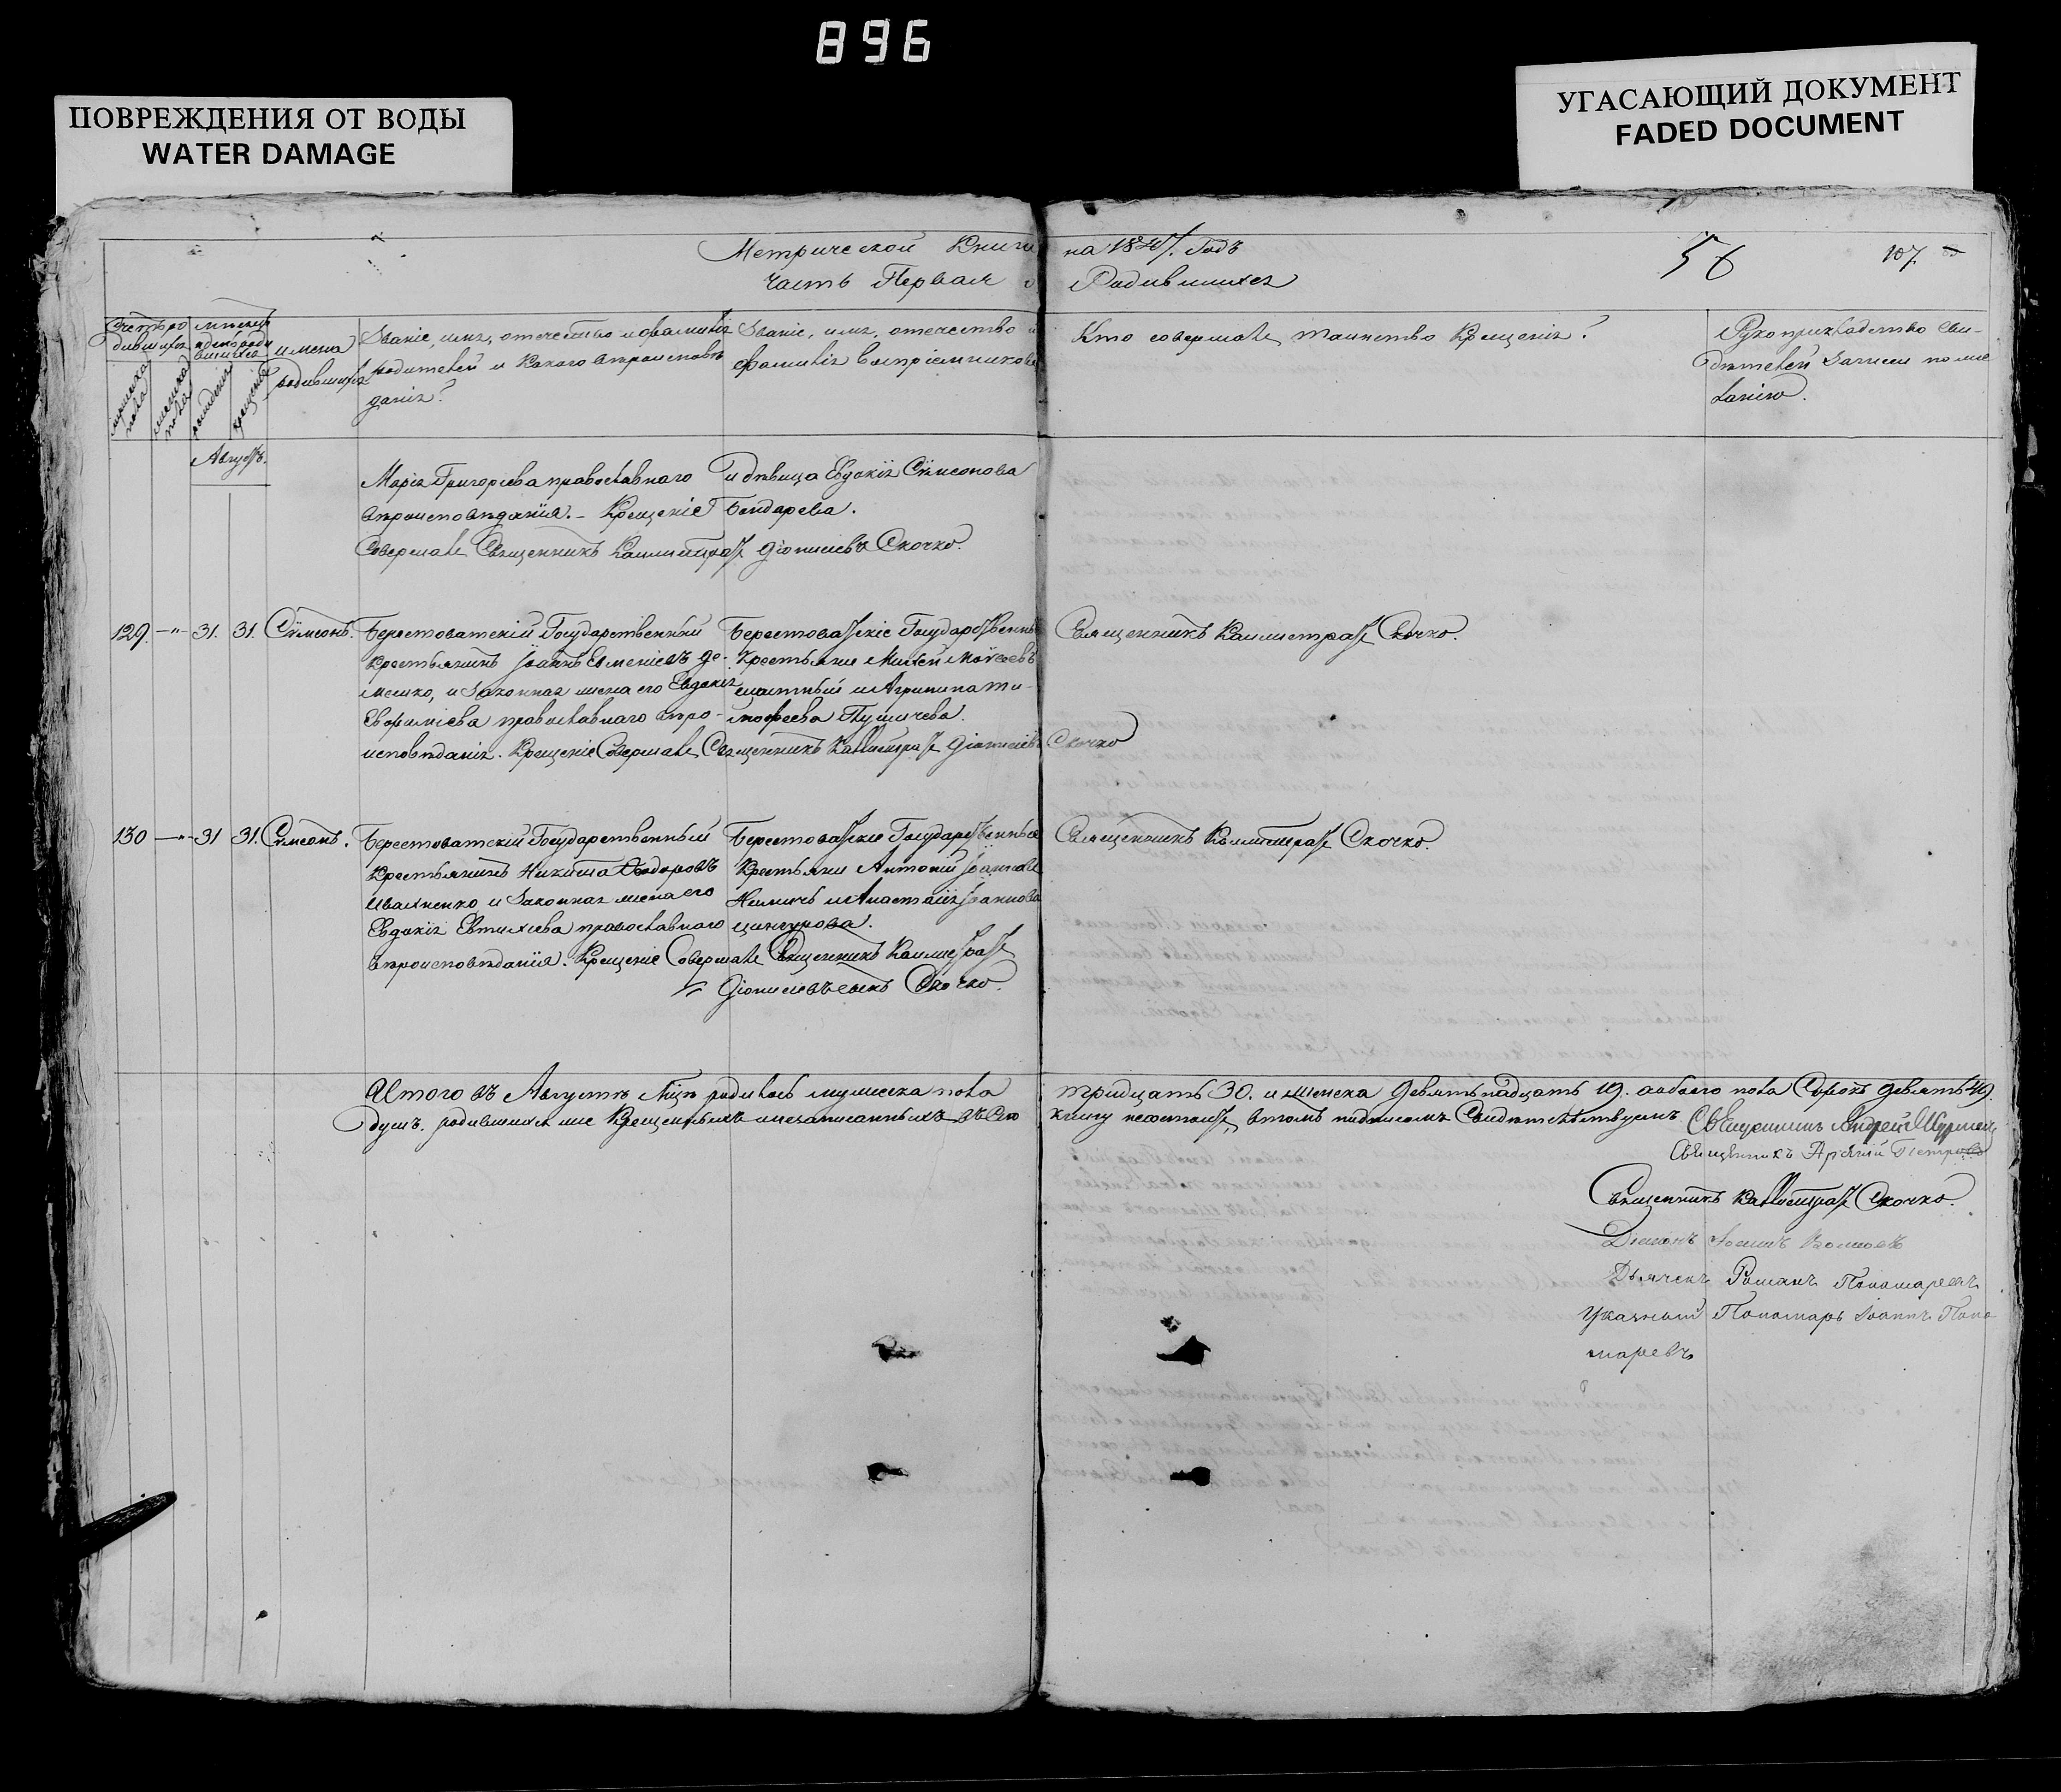 896
ПОВРЕЖДЕНИЯ ОТ ВОДЫ
WATER DAMAGE
УГАСАЮЩИЙ ДОКУМЕНТ
FADED DOCUMENT
Метрической Книги на 1847. Годъ
56 107
Часть Первая о Родившихся
Счетъ родившихся
мужеска пола
женска пола
Мѣсяцъ и день
рожденія
крещенія
имена родившихся
Званіе, имя, отечество и фамилія
родителей и какого вѣроисповѣ
данія?
Званіе, имя, отечество и
фамилія воспріемниковъ
Кто совершалъ таинство Крещенія?
Рукоприкладство сви-
дѣтелей записи по же
ланію.
Августъ.
Марія Григорьева православнаго и дѣвица Евдокія Сѵмеонова
вѣроисповѣданія. - Крещеніе Бондарева.
Совершалъ Священникъ Каллистратъ Діонисіевъ Скочко.
129. -"- 31. 31. Сѵмеонъ.
Берестоватскій Государственный
Крестьянинъ Іоаннъ Евменіевъ Де-
мешко, и законная жена его Евдокія
Евфиміева православнаго вѣро-
исповѣданія. Крещеніе Совершалъ Священникъ Каллистратъ Діонисіевъ Скочко
Берестоватскіе Государственные
Крестьяне Михей Моѵсеевъ
и Агрипина Ти-
мофеева
Священникъ Каллистратъ Скочко.
130 -"- 31 31. Сѵмеонъ.
Берестоватскій Государственный
Крестьянинъ Никита Ѳеодоровъ
Ивахненко и законная жена его
Евдокія Евтихіева православнаго
вѣроисповѣданія. Крещеніе Совершалъ Священникъ Каллистратъ
Діонисіевъ сынъ Скочко.
Берестоватскіе Государственные
Крестьяне Антоній Іоанновъ
и Анастасія Іоаннова
Священникъ Каллистратъ Скочко.
Итого въ Августѣ Мцѣ родилось мужеска пола тридцать 30. и женска девятьнадцать 19. а обоего пола Сорокъ девять 49.
душъ. родившихся не Крещенныхъ и незаписанныхъ въ Сію книгу несостоитъ, въ томъ подписомъ Свидѣтельствуемъ Священникъ Андрей
Священникъ Арсеній Петровъ
Священникъ Каллистратъ Скочко.
Діаконъ
Дьячекъ Романъ Пономаревъ
Указный Пономарь Іоаннъ Поно-
маревъ